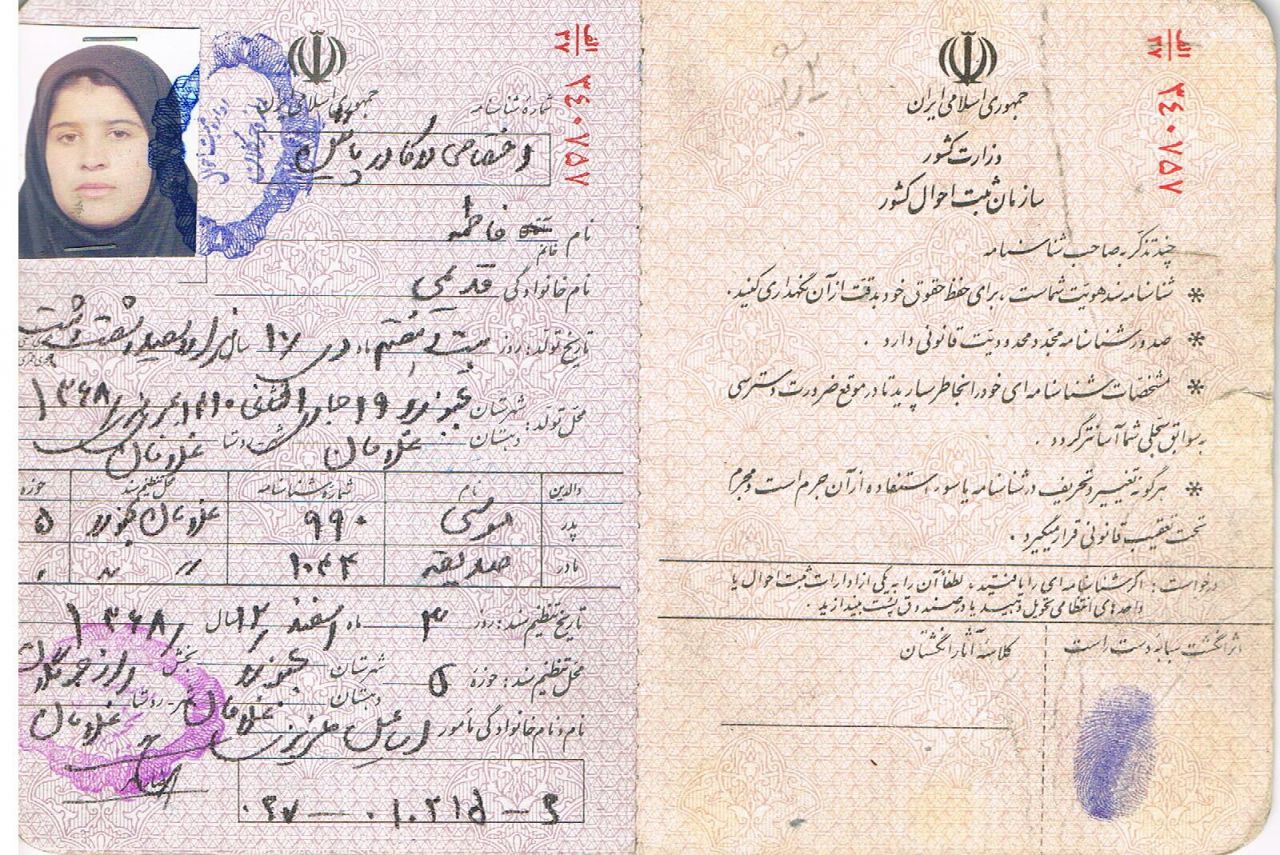 الف
۳۷
۳۴۰۷۵۷
جمهوری اسلامی ایران
وزارت کشور
سازمان ثبت احوال کشور
چند تذکر به صاحب شناسنامه
* شناسنامه سند هویت شماست، برای حفظ حقوق خود بدقت از آن نگهداری کنید.
* صدور شناسنامه مجدد محدودیت قانونی دارد.
* مشخصات شناسنامه ای خود را بخاطر بسپارید تا در موقع ضرورت دسترسی
به سوابق سجلی شما آسانتر گردد.
* هرگونه تغییر و تحریف در شناسنامه یا سوء استفاده از آن جرم است و مجرم
تحت تعقیب قانونی قرار میگیرد.
درخواست: اگر شناسنامه ای را یافتید، لطفاً آن را به یکی از ادارات ثبت احوال یا
واحدهای انتظامی تحویل دهید یا در صندوق پست بیندازید.
اثر انگشت سبابه دست راست
کلاسه آثار انگشتان
الف
۳۷
۳۴۰۷۵۷
جمهوری اسلامی ایران
شماره شناسنامه
نام خانم فاطمه
نام خانوادگی قدیمی
تاریخ تولد: روز بیست و هفتم ماه دی ۱۰ سال هزار و سیصد و شصت و هشت
محل تولد: شهرستان بجنورد ۱۹ جمادی الثانی ۱۴۱۰ ۱۳۶۸
دهستان غلامان
والدین نام شماره شناسنامه محل تنظیم سند حوزه
پدر موسی ۹۹۰ غلامان بجنورد ۵
مادر صدیقه ۱۰۴۴ 〃 〃
تاریخ تنظیم سند: روز ۳ ماه اسفند ۱۲ سال ۱۳۶۸
محل تنظیم سند: حوزه ۵ شهرستان بجنورد بخش راز و جرگلان
دهستان غلامان
نام و نام خانوادگی مأمور اسماعیل عزیزی